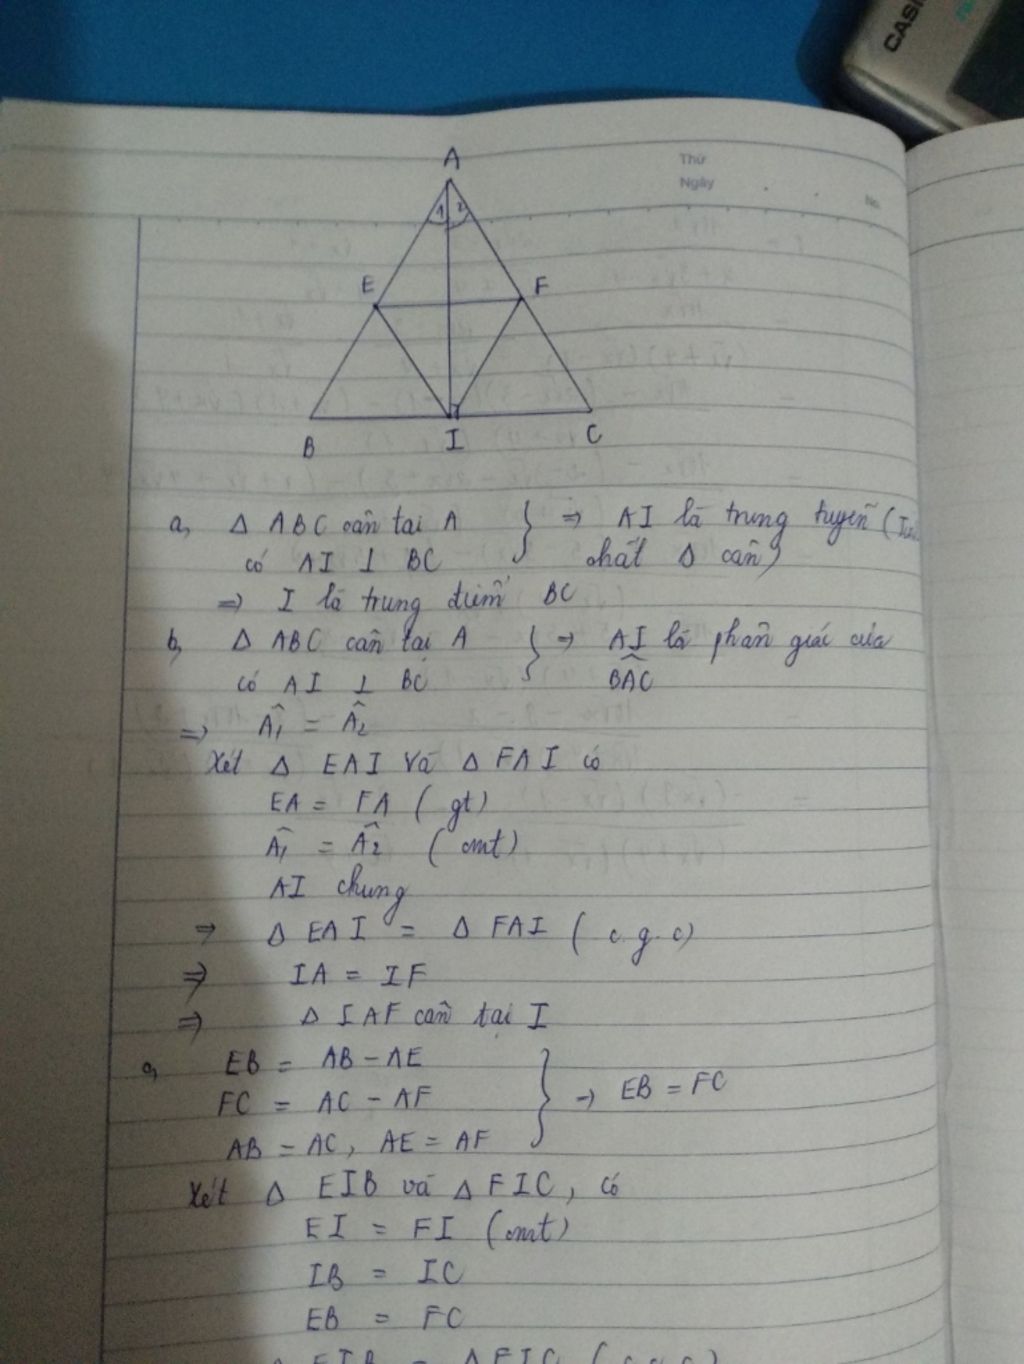 CASI
Thứ
Ngày
No.
A
1 2
E F
B I C
a, Δ ABC cân tại A } => AI là trung tuyến (
có AI ⊥ BC chất Δ cân)
=> I là trung điểm BC
b, Δ ABC cân tại A } => AI là phân giác của
có AI ⊥ BC BAC^
=> A1^ = A2^
Xét Δ EAI và Δ FAI có
EA = FA (gt)
A1^ = A2^ (cmt)
AI chung
=> Δ EAI = Δ FAI (c.g.c)
=> IA = IF
=> Δ IAF cân tại I
c, EB = AB - AE
FC = AC - AF } => EB = FC
AB = AC, AE = AF
Xét Δ EIB và Δ FIC, có
EI = FI (cmt)
IB = IC
EB = FC
Δ EIB = Δ FIC (c.c.c)